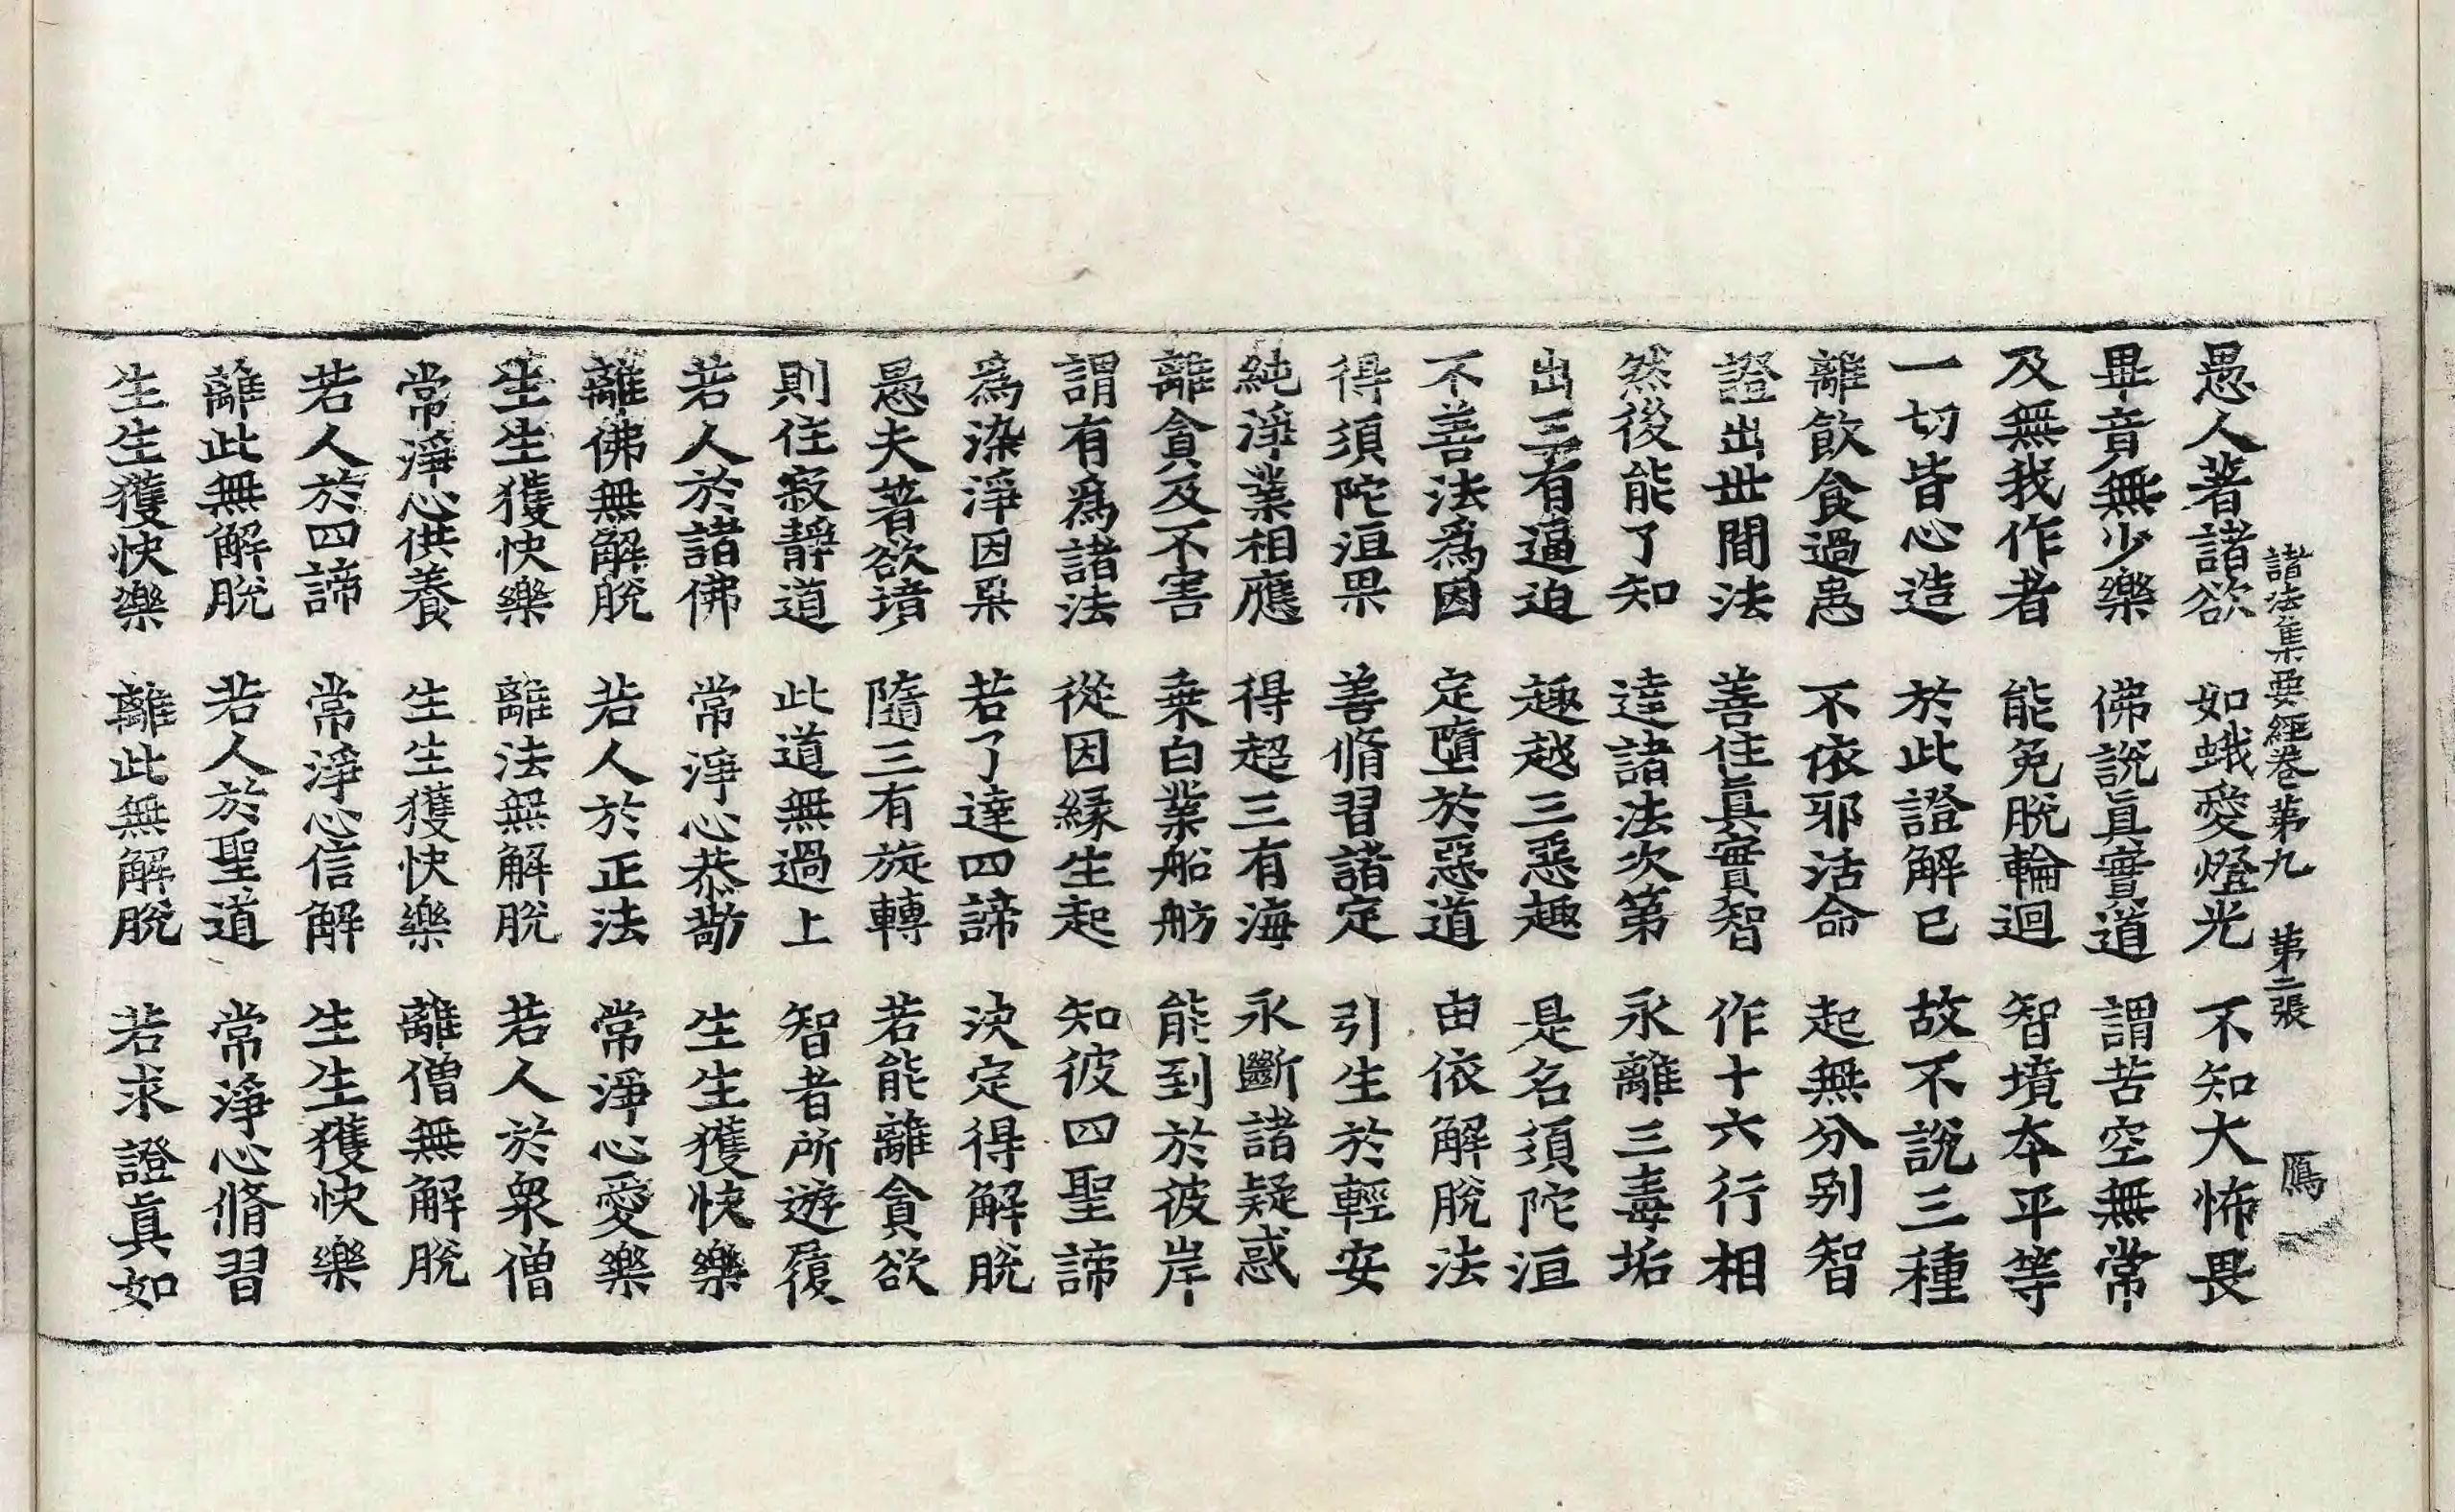 諸法集要經卷第九　第二張　鴈
愚人著諸欲　如蛾愛燈光　不知大怖畏
畢竟無少樂　佛說眞實道　謂苦空無常
及無我作者　能免脫輪迴　智境本平等
一切皆心造　於此證解已　故不說三種
離飲食過患　不依邪活命　起無分別智
證出世間法　善住眞實智　作十六行相
然後能了知　達諸法次第　永離三毒垢
出三有逼迫　趣越三惡趣　是名須陀洹
不善法爲因　定墮於惡道　由依解脫法
得須陀洹果　善脩習諸定　引生於輕安
純淨業相應　得超三有海　永斷諸疑惑
離貪及不害　乗白業船舫　能到於彼岸
謂有爲諸法　從因緣生起　知彼四聖諦
爲染淨因果　若了達四諦　決定得解脫
愚夫著欲境　隨三有旋轉　若能離貪欲
則住寂靜道　此道無過上　智者所遊履
若人於諸佛　常淨心恭敬　生生獲快樂
離佛無解脫　若人於正法　常淨心愛樂
生生獲快樂　離法無解脫　若人於衆僧
常淨心供養　生生獲快樂　離僧無解脫
若人於四諦　常淨心信解　生生獲快樂
離此無解脫　若人於聖道　常淨心脩習
生生獲快樂　離此無解脫　若求證眞如